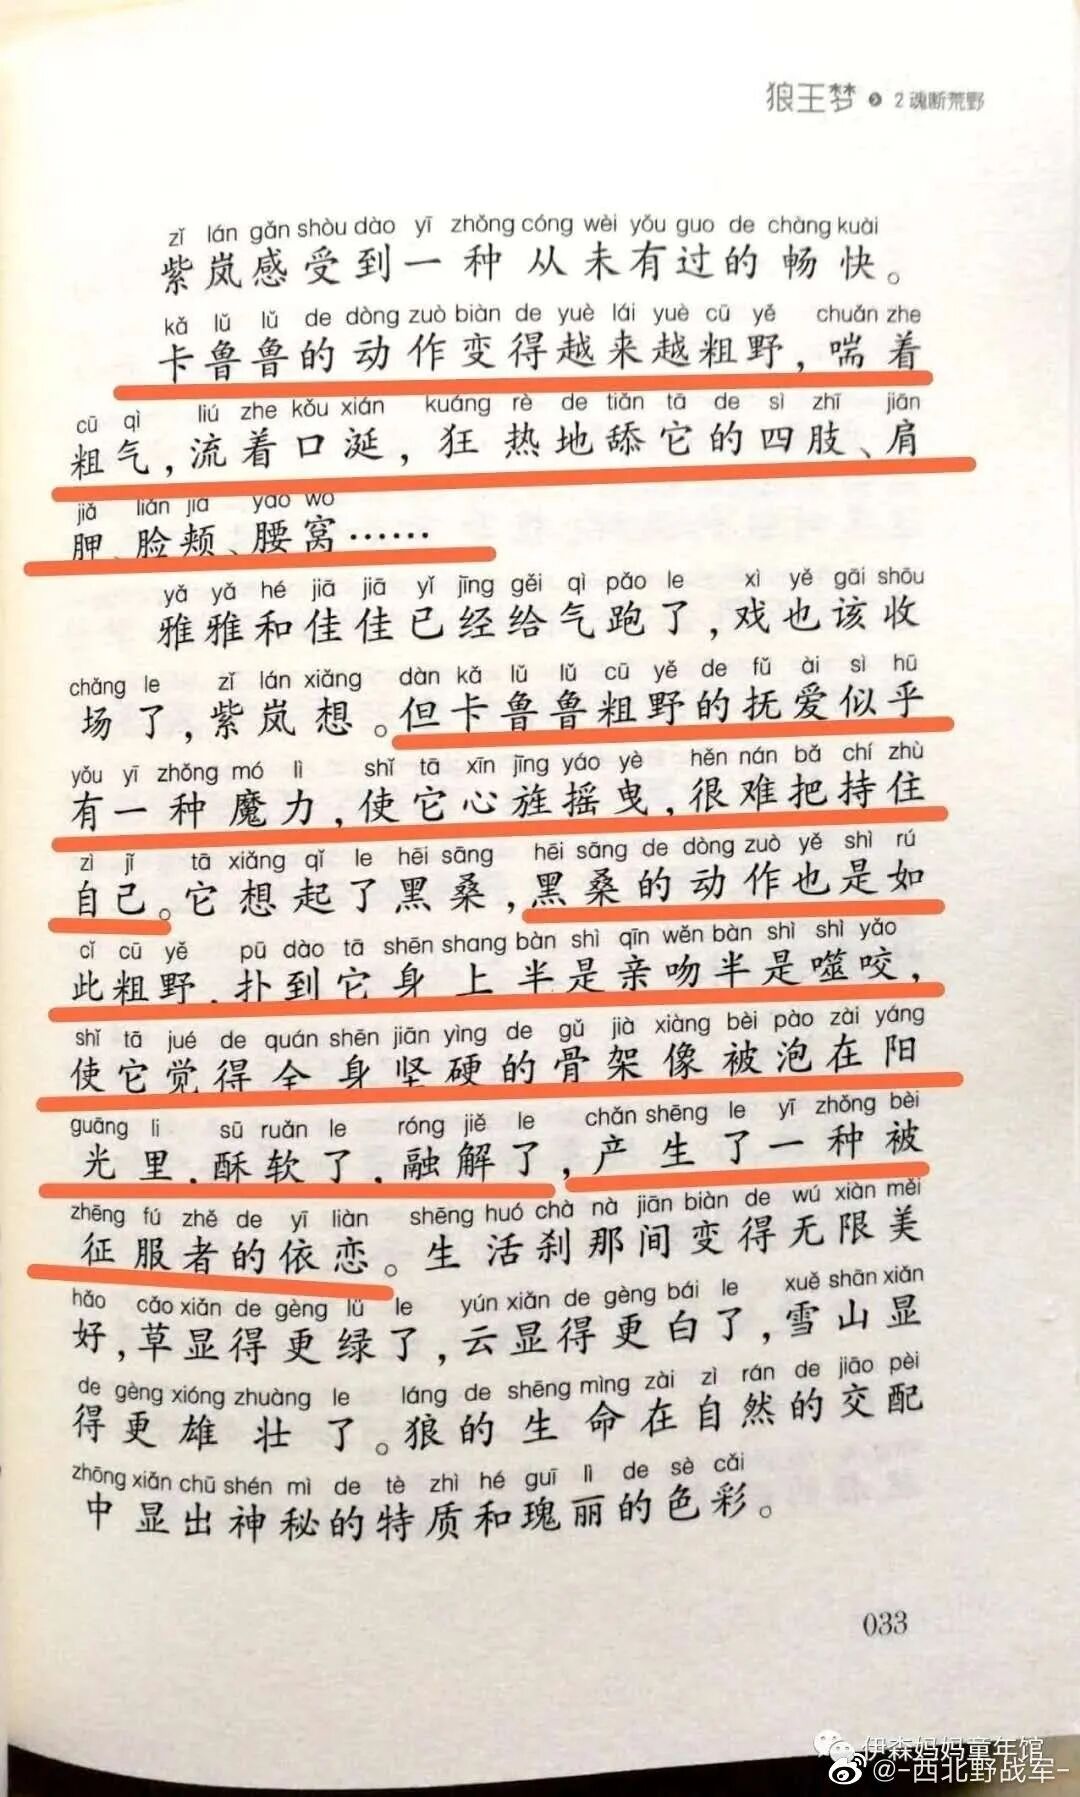 狼王梦 2 魂断荒野
zǐ lán gǎn shòu dào yī zhǒng cóng wèi yǒu guo de chàng kuài
紫岚感受到一种从未有过的畅快。
kǎ lǔ lǔ de dòng zuò biàn de yuè lái yuè cū yě chuǎn zhe
卡鲁鲁的动作变得越来越粗野，喘着
cū qì liú zhe kǒu xián kuáng rè de tiǎn tā de sì zhī jiān
粗气，流着口涎，狂热地舔它的四肢、肩
jiǎ liǎn jiá yāo wō
胛、脸颊、腰窝……
yǎ yǎ hé jiā jiā yǐ jīng gěi qì pǎo le xì yě gāi shōu
雅雅和佳佳已经给气跑了，戏也该收
chǎng le zǐ lán xiǎng dàn kǎ lǔ lǔ cū yě de fǔ ài sì hū
场了，紫岚想。但卡鲁鲁粗野的抚爱似乎
yǒu yī zhǒng mó lì shǐ tā xīn jīng yáo yè hěn nán bǎ chí zhù
有一种魔力，使它心旌摇曳，很难把持住
zì jǐ tā xiǎng qǐ le hēi sāng hēi sāng de dòng zuò yě shì rú
自己。它想起了黑桑，黑桑的动作也是如
cǐ cū yě pū dào tā shēn shang bàn shì qīn wěn bàn shì shì yǎo
此粗野，扑到它身上半是亲吻半是噬咬，
shǐ tā jué de quán shēn jiān yìng de gǔ jià xiàng bèi pào zài yáng
使它觉得全身坚硬的骨架像被泡在阳
guāng li sū ruǎn le róng jiě le chǎn shēng le yī zhǒng bèi
光里，酥软了，融解了，产生了一种被
zhēng fú zhě de yī liàn shēng huó chà nà jiān biàn de wú xiàn měi
征服者的依恋。生活刹那间变得无限美
hǎo cǎo xiǎn de gèng lǜ le yún xiǎn de gèng bái le xuě shān xiǎn
好，草显得更绿了，云显得更白了，雪山显
de gèng xióng zhuàng le láng de shēng mìng zài zì rán de jiāo pèi
得更雄壮了。狼的生命在自然的交配
zhōng xiǎn chū shén mì de tè zhì hé guī lì de sè cǎi
中显出神秘的特质和瑰丽的色彩。
033
伊森妈妈童年馆
@-西北野战军-